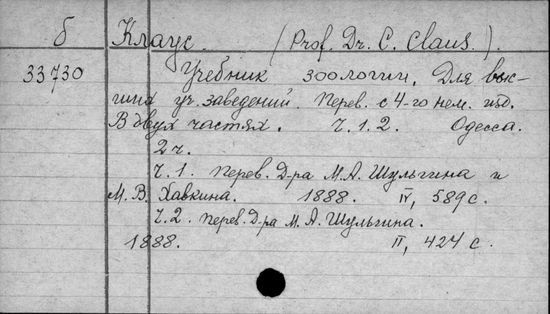 б Клаус. (Prof. Dr. C. Claus.).
33730 Учебник зоологии. Для выс-
ших уч. заведений. Перев. с 4-го нем. изд.
В двух частях. Ч.1.2. Одесса.
2 ч.
Ч.1. Перев. Д-ра М.А. Шульгина и
М.В. Хавкина. 1888. IV, 589 с.
Ч.2. Перев. Д-ра М.А. Шульгина.
1888. II, 424 с.